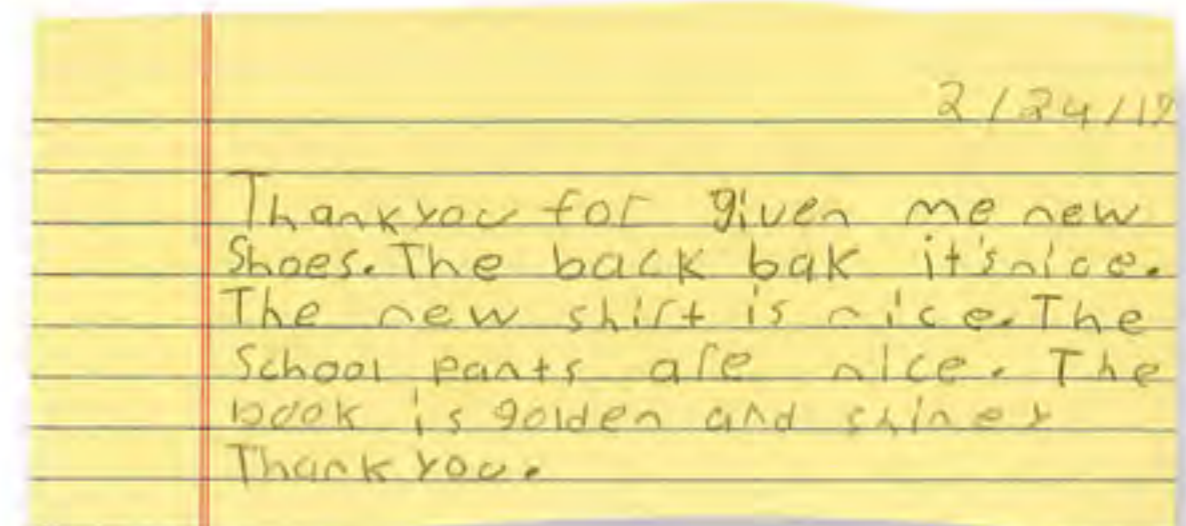 2/24/17
Thank you for given me new
Shoes. The back bak it's nice.
The new shirt is nice. The
School pants are nice. The
book is golden and shiney
Thank you.